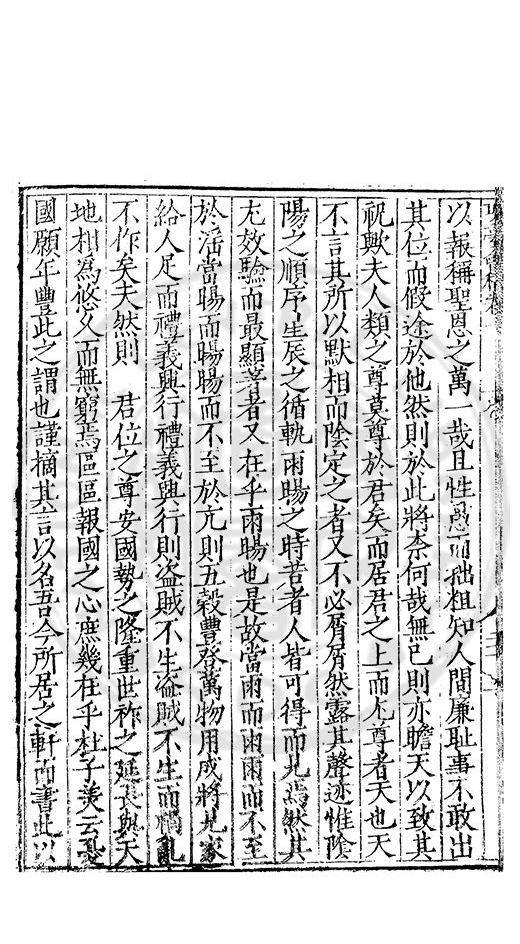 以報稱聖恩之萬一哉且性愚而拙粗知人間廉耻事不敢出
其位而假途於他然則於此將柰何哉無已則亦瞻天以致其
祝歟夫人類之尊莫尊於君矣而居君之上而尤尊者天也天
不言其所以默相而陰定之者又不必屑屑然露其聲迹惟陰
陽之順序生辰之循軌雨暘之時若者人皆可得而見焉然其
尤效驗而最顯著者又在乎雨暘也是故當雨而雨雨而不至
於淫當暘而暘暘而不至於亢則五穀豐登萬物用成將見家
給人足而禮義興行禮義興行則盗賊不生盗賊不生而禍亂
不作矣夫然則 君位之尊安國勢之隆重世祚之延長與天
地相爲悠久而無窮焉區區報國之心庶幾在乎杜子美云憂
國願年豐此之謂也謹摘其言以名吾今所居之軒而書此以